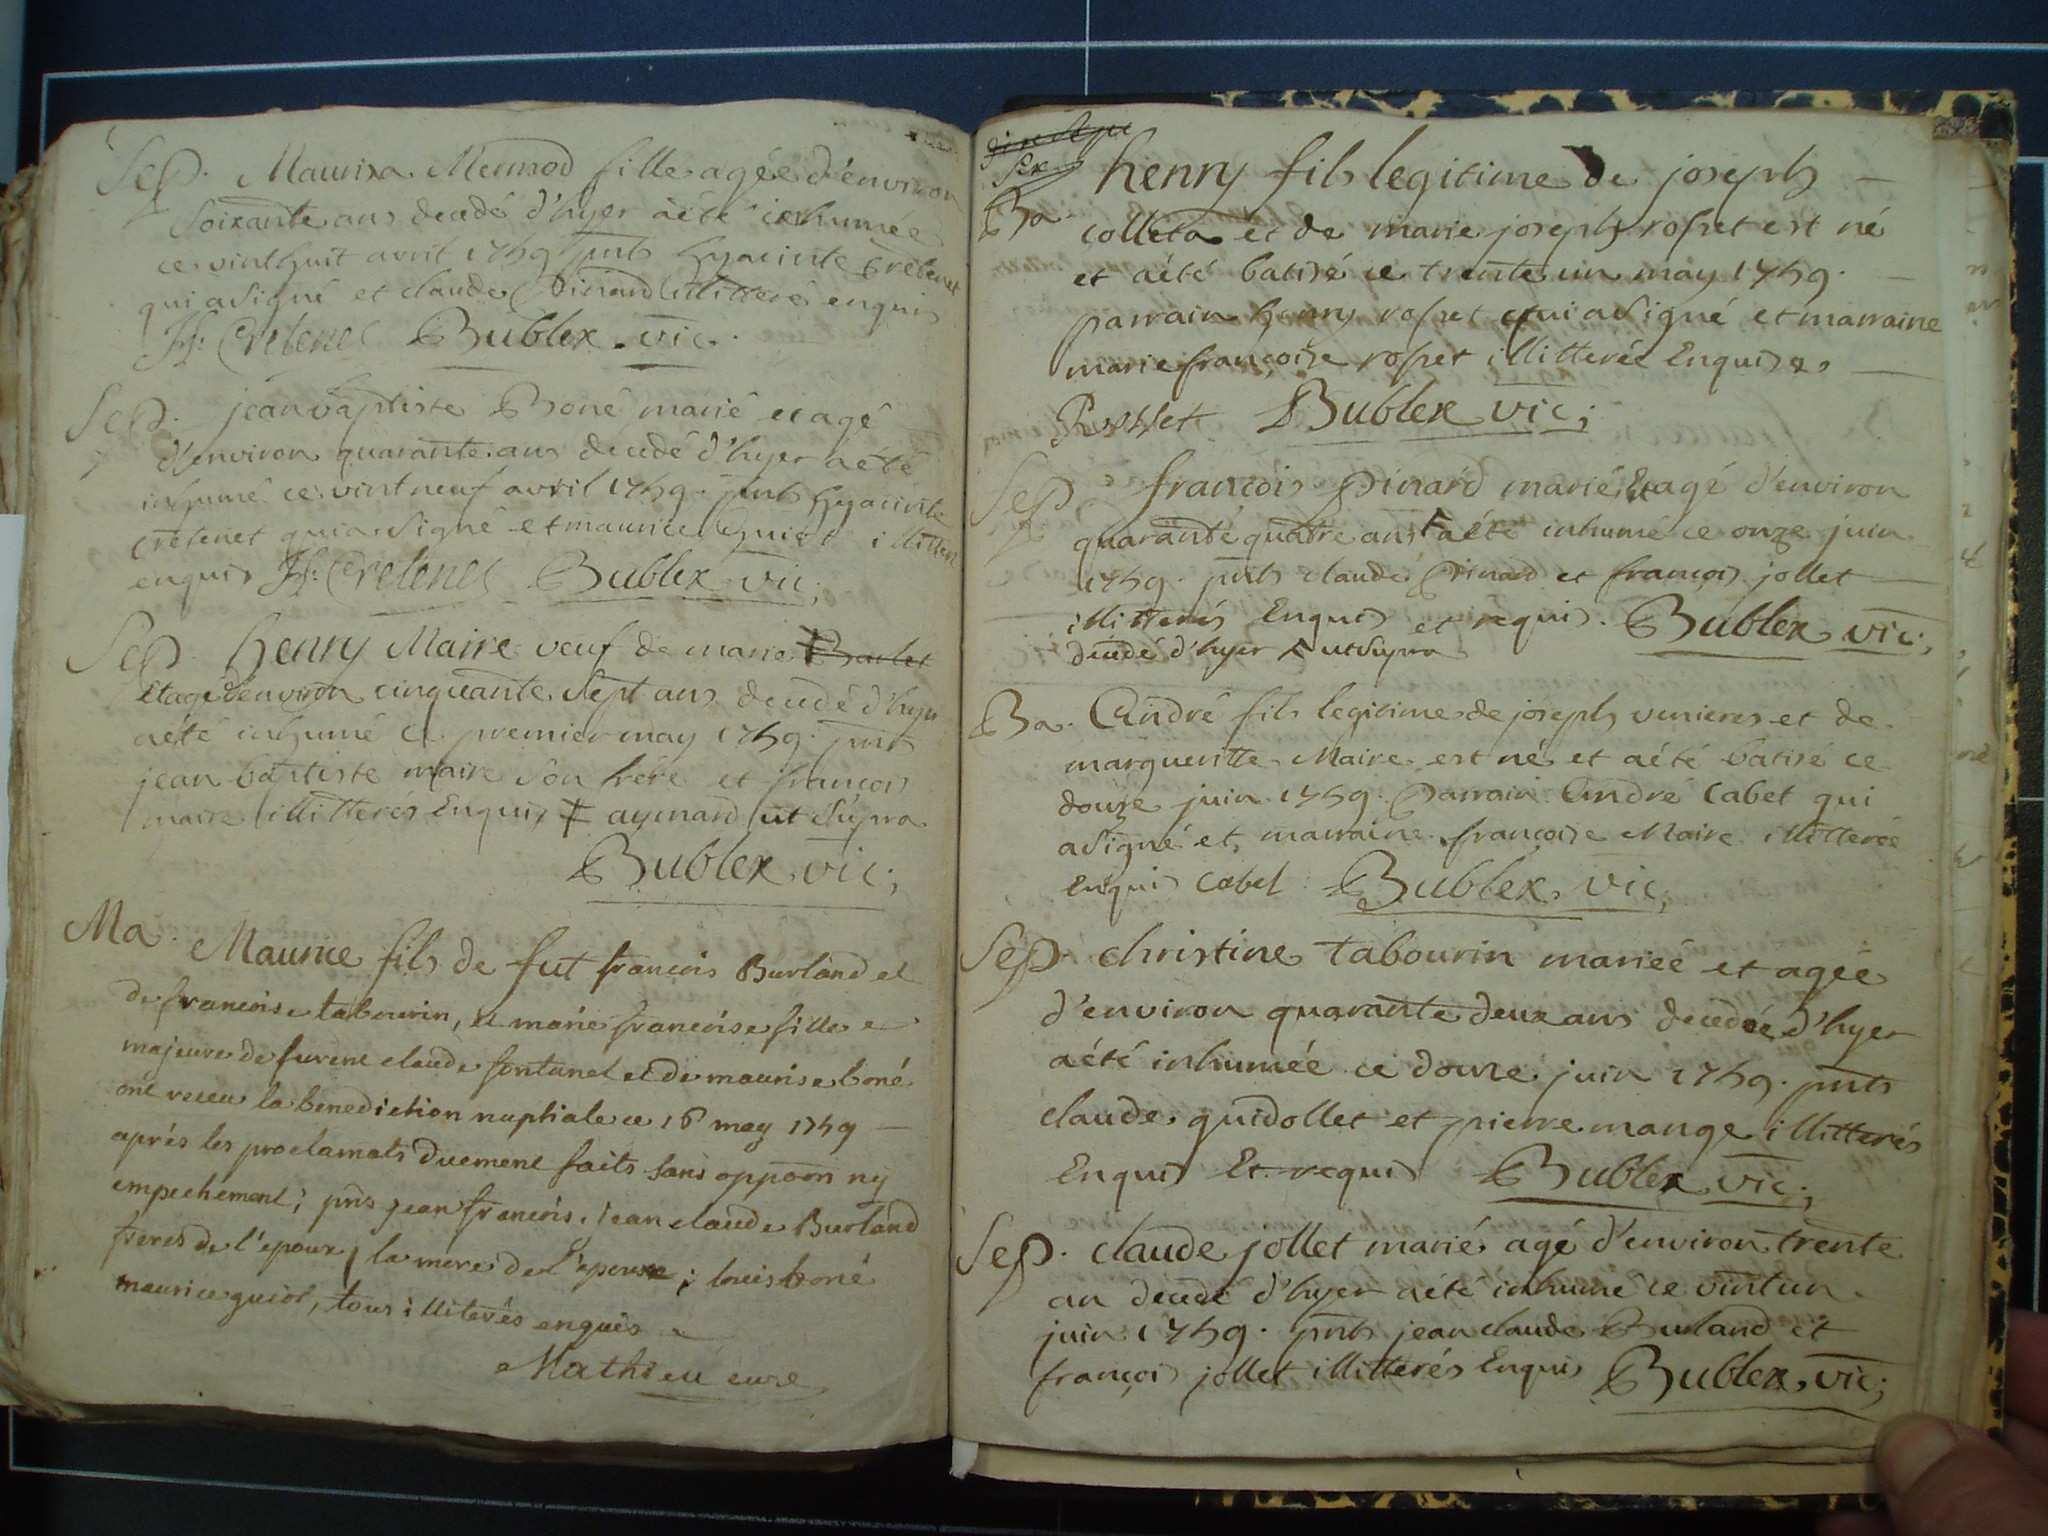 Sep. Mauriza Mermod fille agée d'environ
soixante ans decedé d'hyer aété inhumée
ce vinthuit avril 1759 pnts hyacinte Cretenet
qui asigné et claude Pinard illitteré enquis
H: Cretenet Bublex vic.
Sep. jean baptiste Boné marié et agé
d'environ quarante ans decedé d'hyer aété
inhumé ce vintneuf avril 1759. pnts hyacinte
cretenet qui a signé et maurice Guiot illitteré
enquis H: Cretenet Bublex vic;
Sep. henry Maire veuf de marie ‡ Barlet
Etagé denviron cinquante sept ans decedé d'hyer
aété inhumé ce premier may 1759. pnts
jean baptiste maire son frére et françois
maire illitterés Enquis ‡ aymard ut supra
Bublex vic;
Ma. Maurice fils de fut francois Burland et
de francoise tabourin, et marie francoise fille
majeure de furent claude fontanel et de maurise boné
ont receu la benediction nuptiale ce 16 may 1759
aprés les proclamats duement faits sans oppoon ny
empechement; pnts jean francois, jean claude Burland
freres de l'epoux, la mere de l'epouse; louis boné
maurice guiot, tous illiterés enquis
Mathieu curé
Ba. henry fils legitime de joseph
colleta et de marie joseph rosset est né
et aété batisé ce trente un may 1759.
parrain henry rosset qui asigné et marraine
marie françoise rosset illitterée Enquise
Rosset Bublex vic;
Sep. françois Pinard marié Etagé d'environ
quarante quatre ans ‡ aété inhumé ce onze juin
1759. pnts claude Pinard et françois jollet
illitterés Enquis et requis. Bublex vic;
decedé d'hyer ‡ utsupra
Ba. André fils legitime de joseph venieres et de
margueritte Maire est né et aété batisé ce
douze juin 1759. Parrain André Cabet qui
asigné et marraine françoise Maire illitterée
Enquis cabet Bublex vic;
Sep. christine tabourin mariéé et agéé
d'environ quarante deux ans decedée d'hyer
aété inhumée ce douze juin 1759. pnts
claude guidollet et pierre mange illitterés
Enquis Et requis Bublex vic;
Sep. claude jollet marié agé d'environ trente
an decedé d'hyer aété inhumé ce vintun
juin 1759. pnts jean claude Burland et
françois jollet illitterés Enquis Bublex vic;